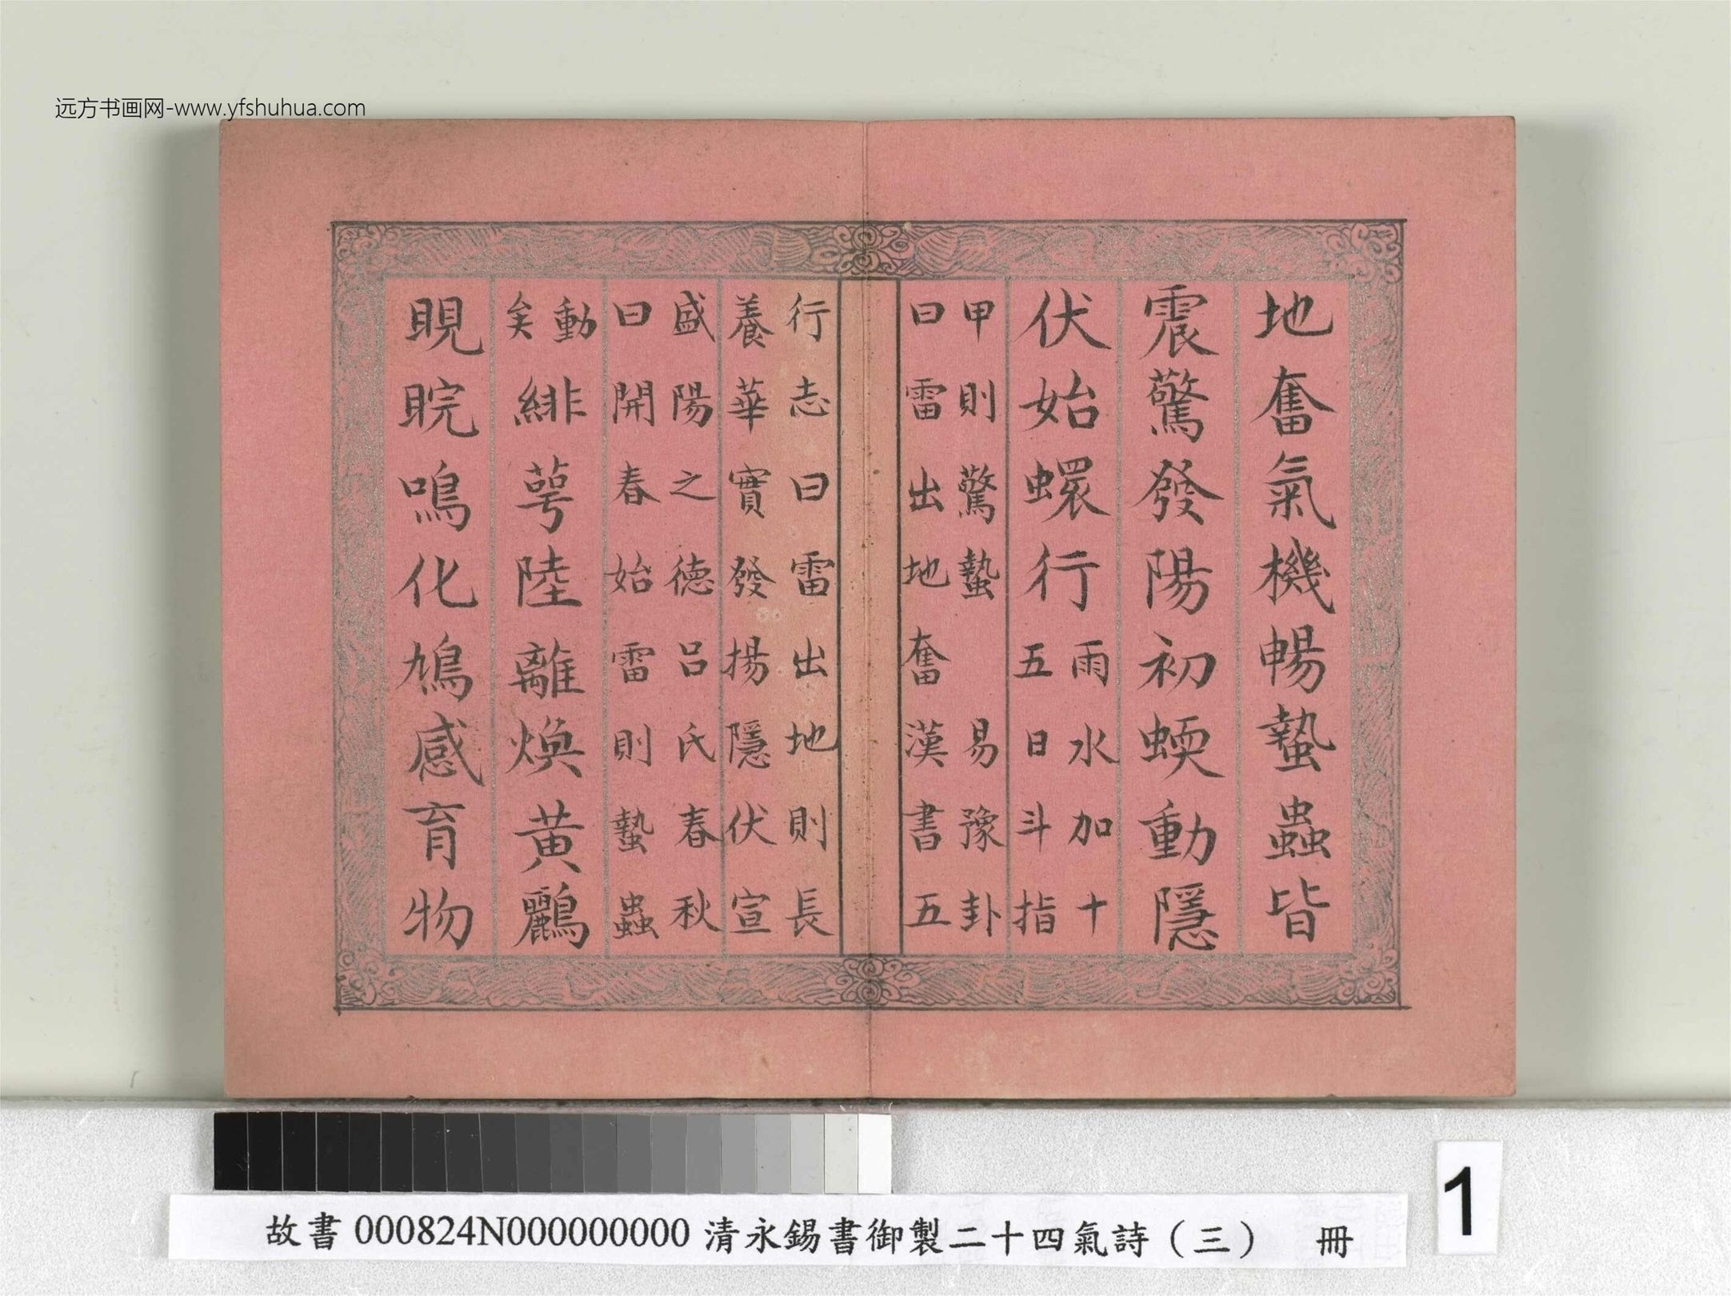 远方书画网-www.yfshuhua.com
地奮氣機暢蟄蟲皆
震驚發陽初蝡動隱
伏始蠉行雨水加十
五日斗指
甲則驚蟄 易豫卦
曰雷出地奮漢書五
行志曰雷出地則長
養華實發揚隱伏宣
盛陽之德呂氏春秋
曰開春始雷則蟄蟲
動矣緋萼陸離煥黃鸝
睍睆鳴化鳩感育物
故書000824N000000000清永錫書御製二十四氣詩（三） 冊
1